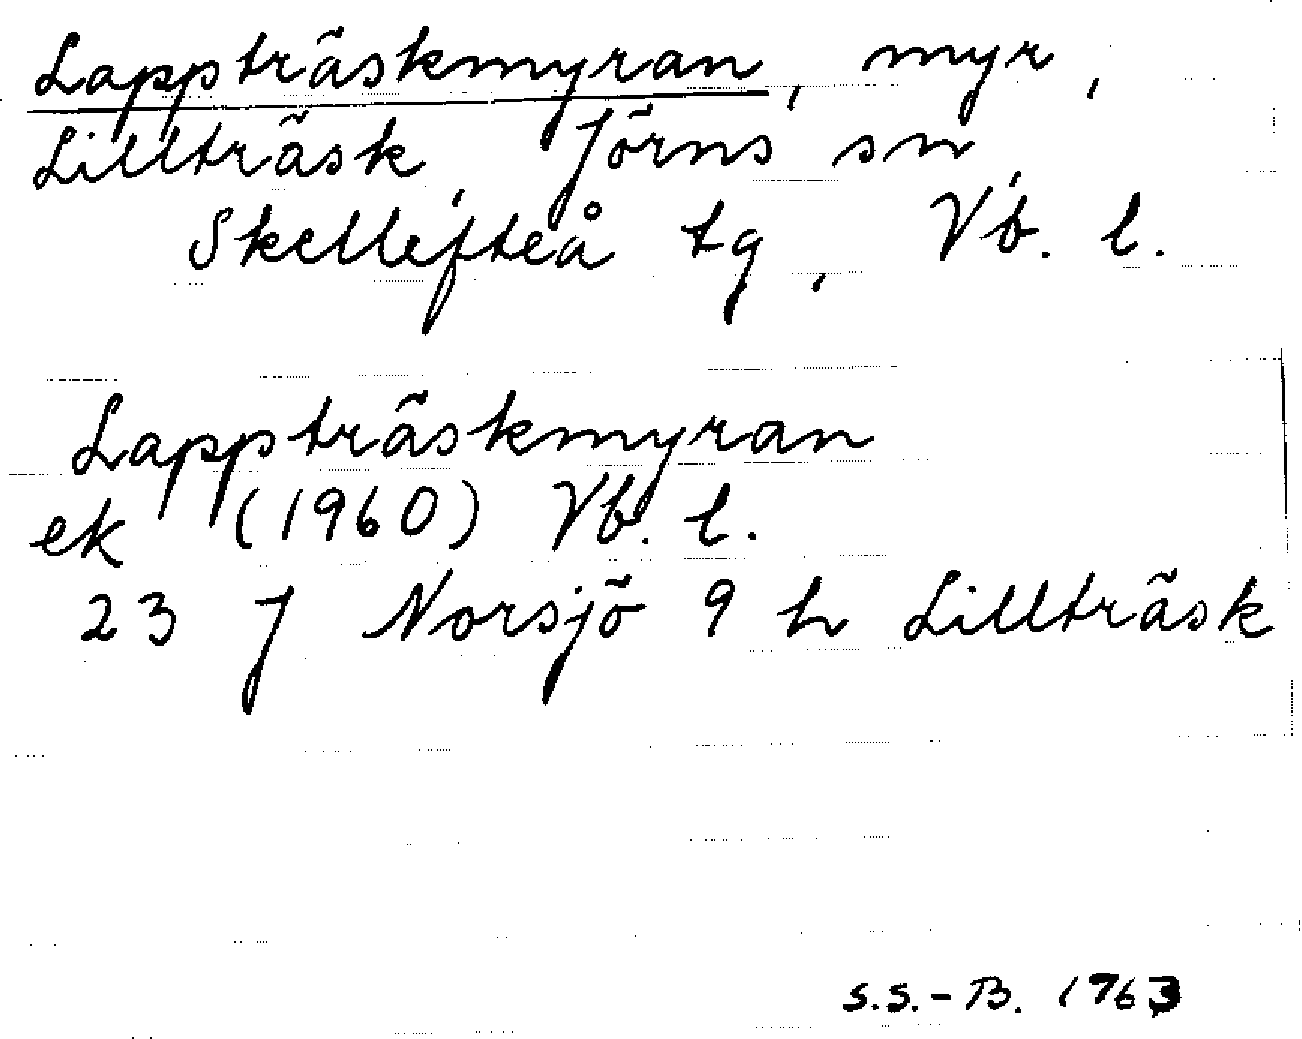 Lappträskmyran, myr,
Lillträsk, Jörns sn,
Skellefteå tg, Vb. l.
Lappträskmyran
ek (1960) Vb. l.
23 J Norsjö 9 h Lillträsk
S.S.-B. 1963